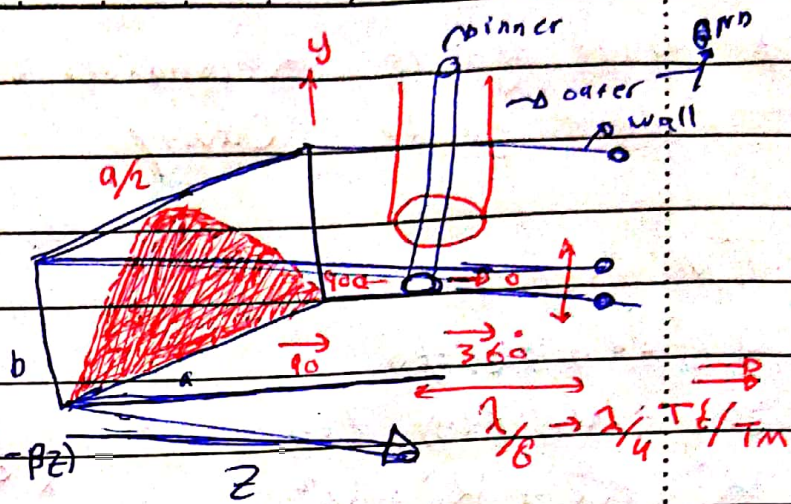 inner
y
GND
→ outer
wall
a/2
90
0
b
a
→ 90
→ 360°
λ/8 → λ/4
TE/TM
-βz)
Z